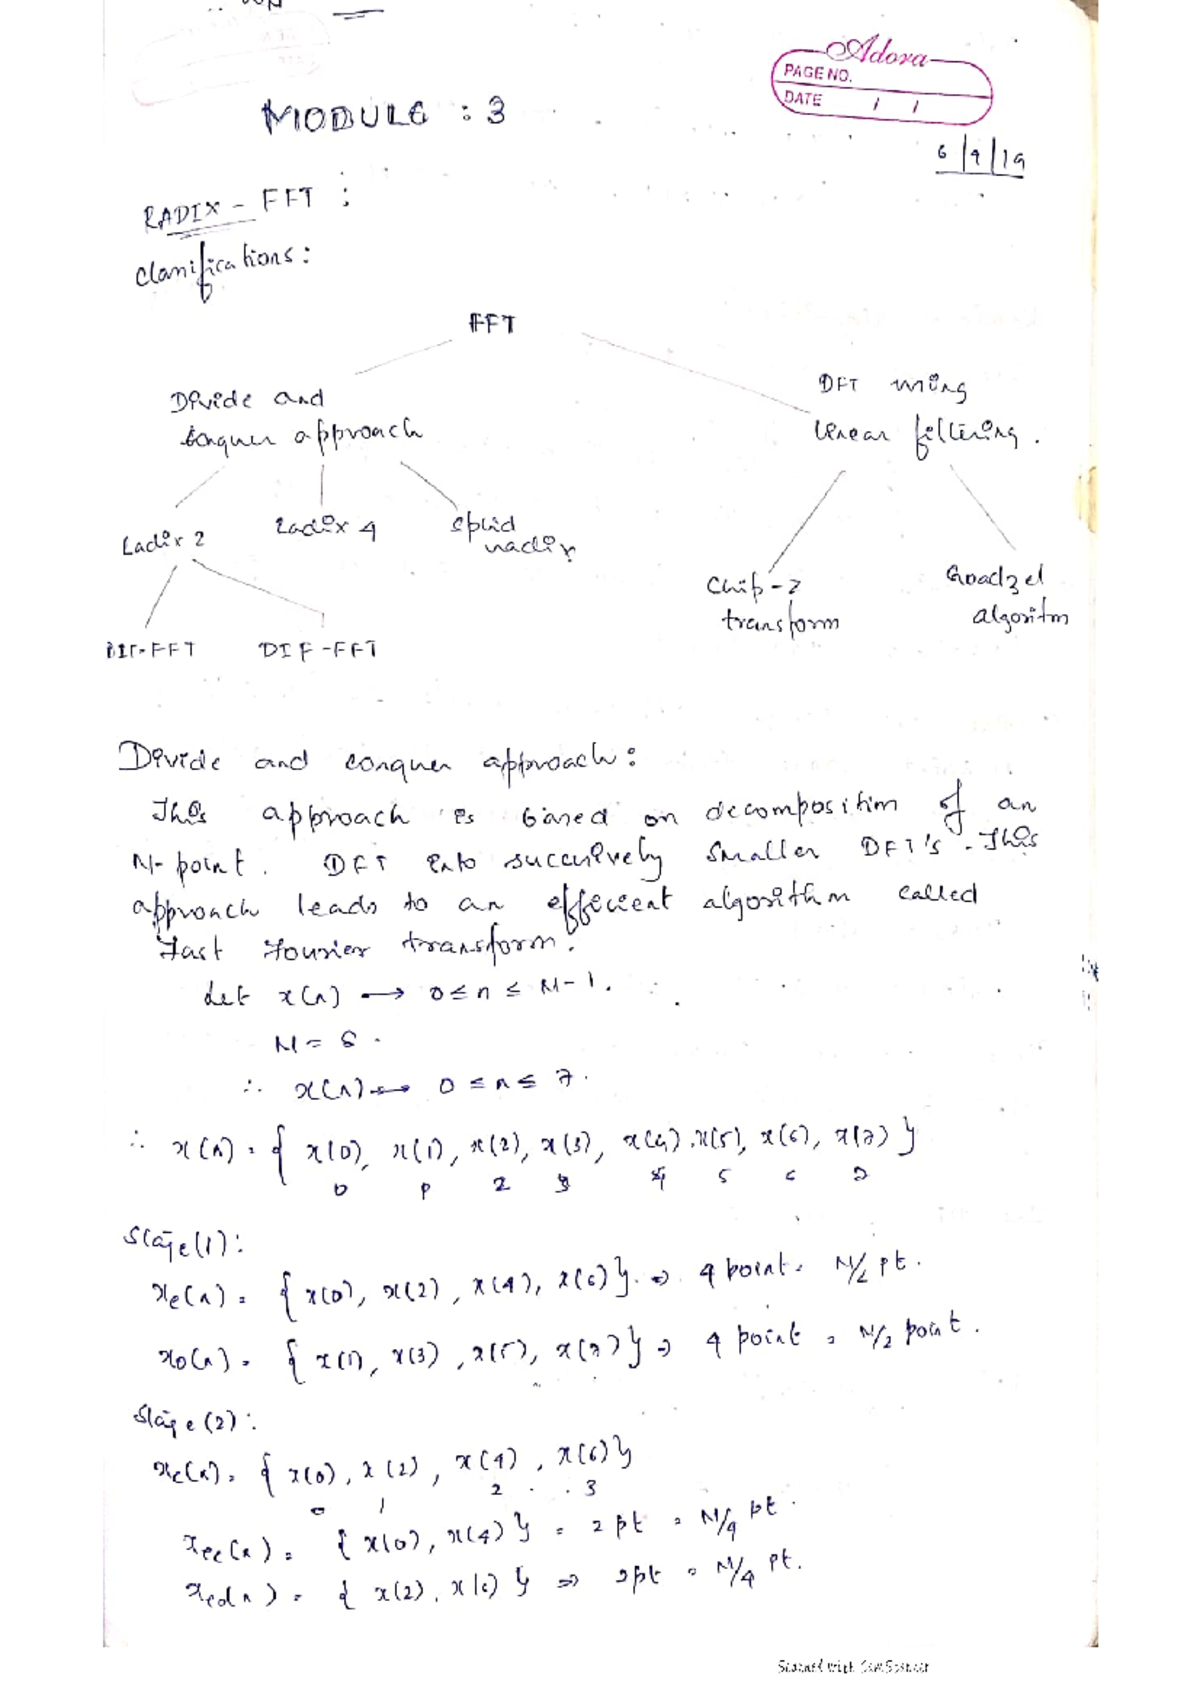 Adora
PAGE NO.
DATE / /
MODULE : 3
6/9/19
RADIX - FFT :
Classifications:
FFT
Divide and
Conquer approach
DFT using
linear filtering.
Radix 2
Radix 4
Split
radix
Chirp-z
transform
Goadzel
algoritm
DIT-FFT
DIF-FFT
Divide and conquer approach:
This approach is based on decomposition of an
N-point. DFT into successively smaller DFT's. This
approach leads to an effecient algorithm called
Fast Fourier transform.
Let x(n) → 0≤n≤N-1.
N = 8.
∴ x(n) → 0≤n≤7.
∴ x(n) = { x(0), x(1), x(2), x(3), x(4), x(5), x(6), x(7) }
0 1 2 3 4 5 6 7
Stage(1):
xe(n) = { x(0), x(2), x(4), x(6) } ⇒ 4 point = N/2 pt.
xo(n) = { x(1), x(3), x(5), x(7) } ⇒ 4 point = N/2 point.
Stage(2):
xe(n) = { x(0), x(2), x(4), x(6) }
0 1 2 3
xee(n) = { x(0), x(4) } = 2 pt = N/4 pt.
xeo(n) = { x(2), x(6) } ⇒ 2pt = N/4 pt.
Scanned with CamScanner